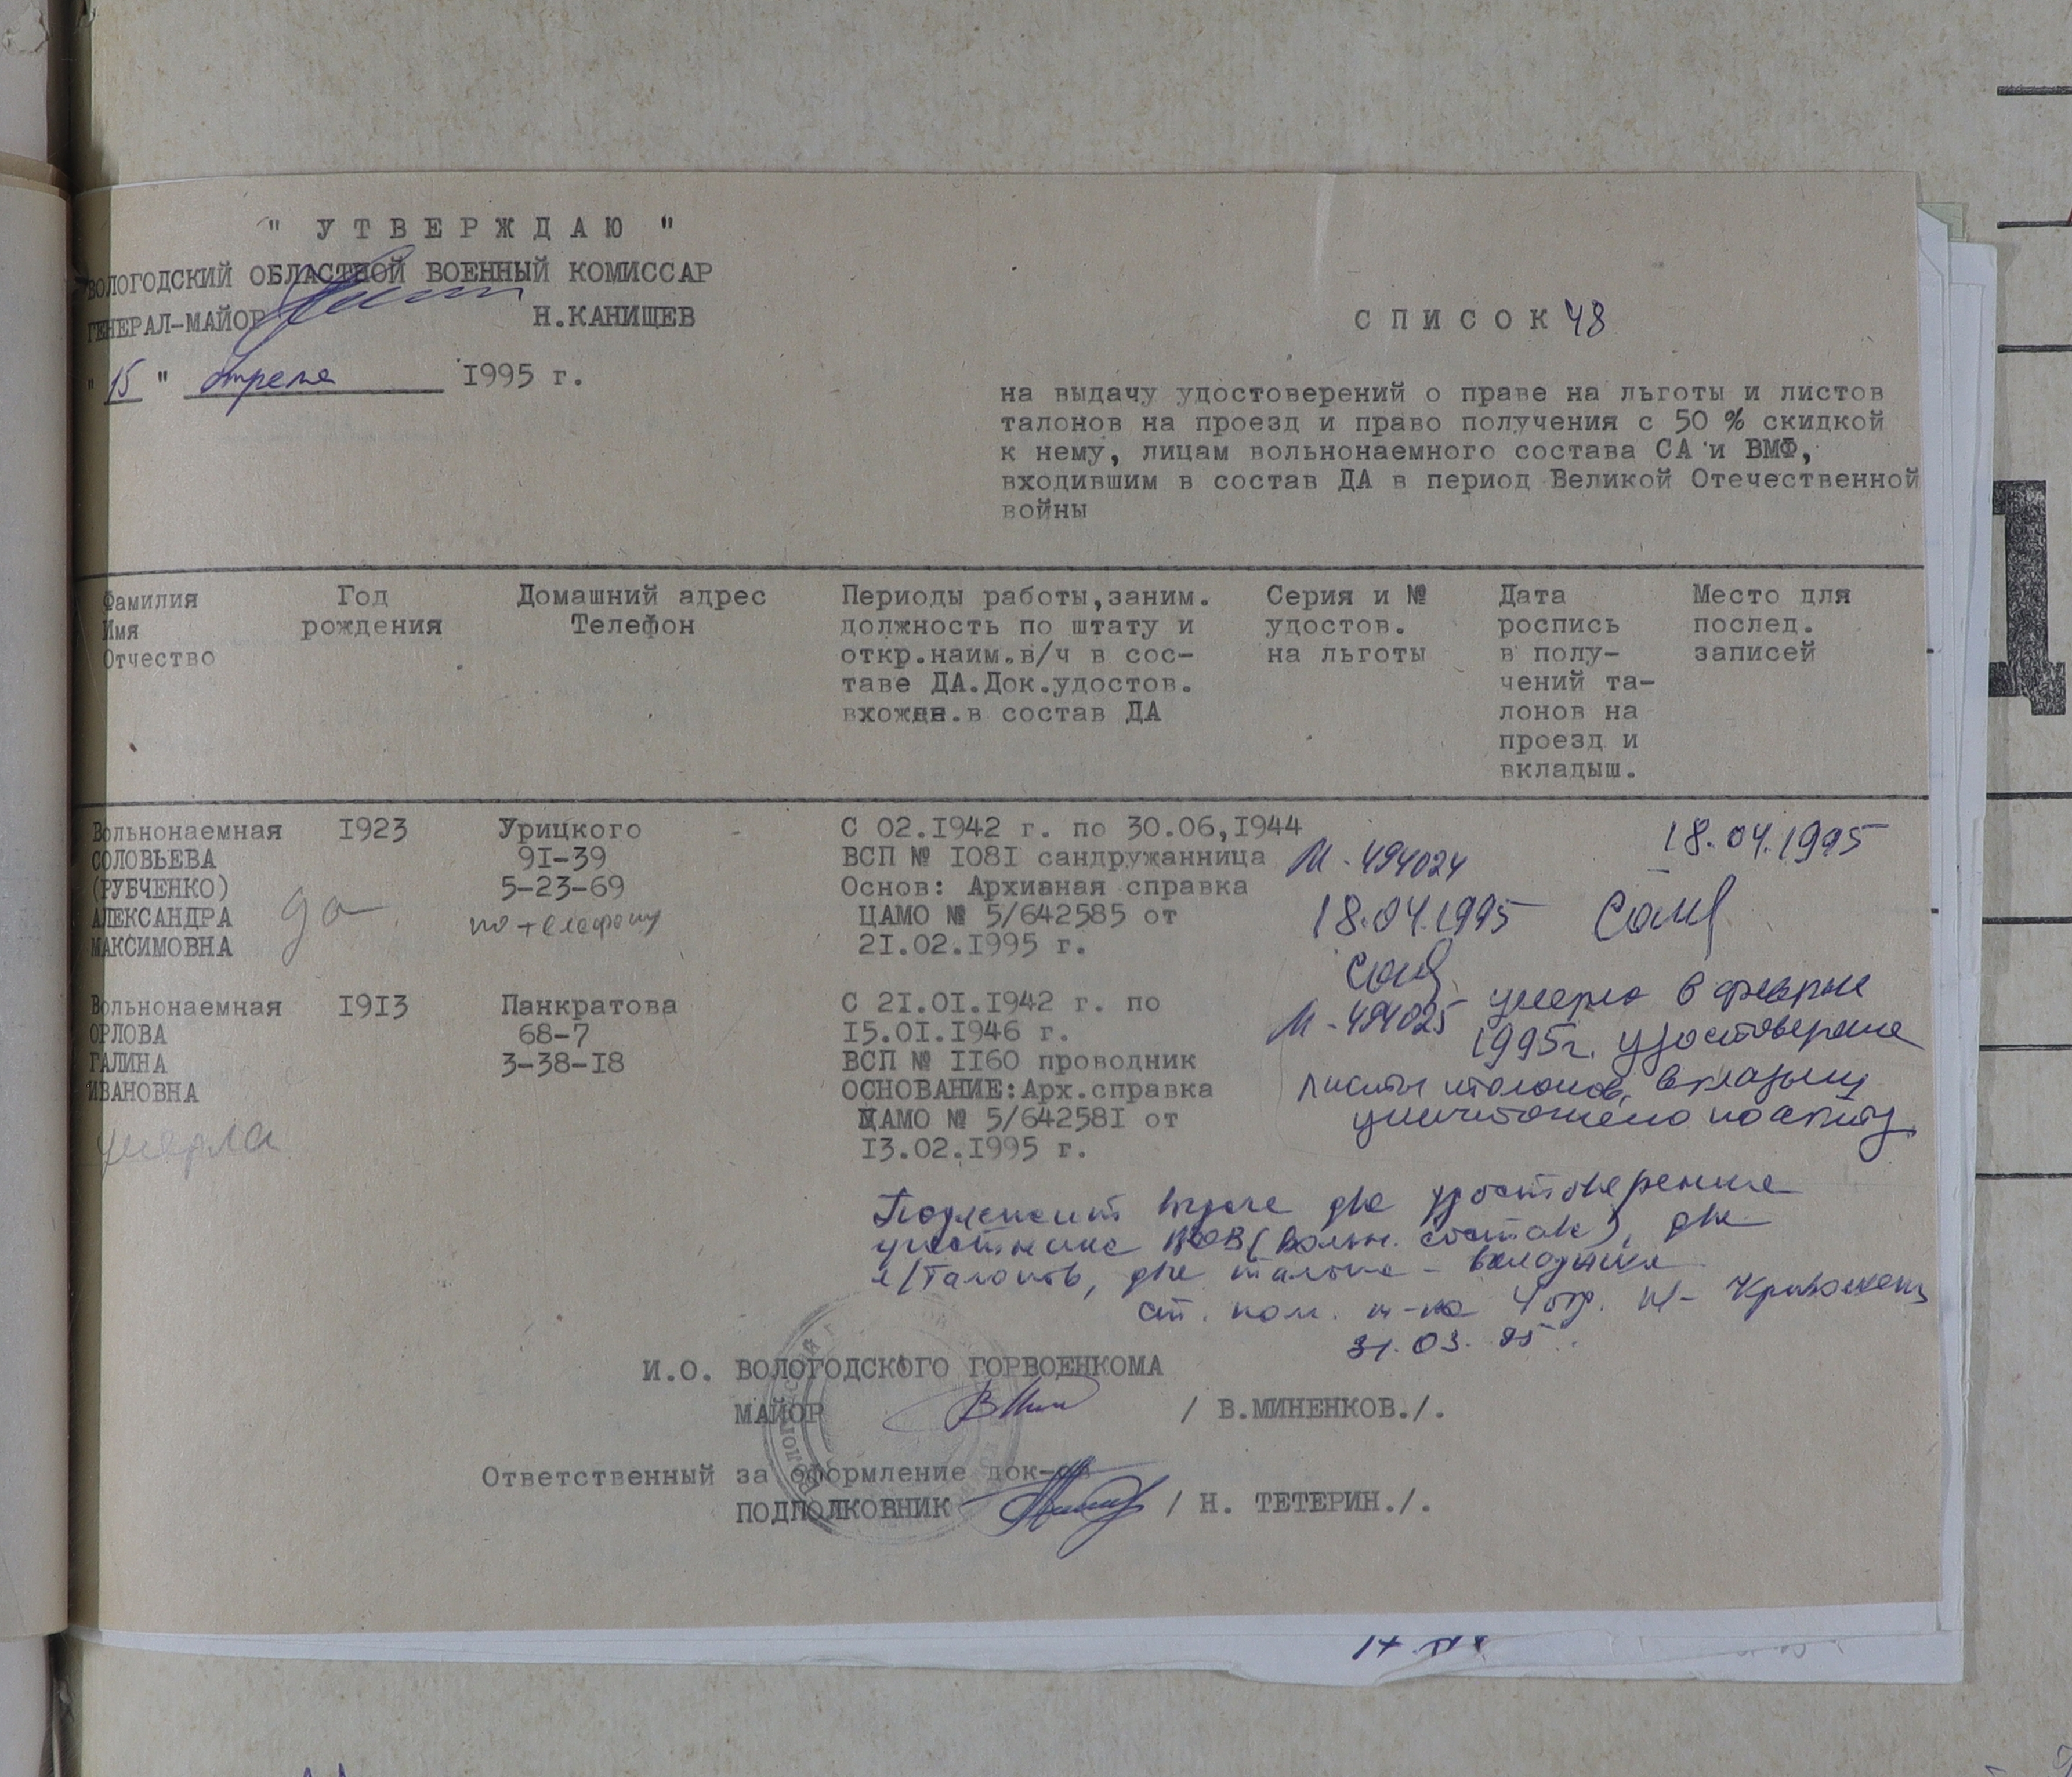 " У Т В Е Р Ж Д А Ю "
ВОЛОГОДСКИЙ ОБЛАСТНОЙ ВОЕННЫЙ КОМИССАР
ГЕНЕРАЛ-МАЙОР Н.КАНИЩЕВ
" 15 " апреля 1995 г.
С П И С О К 48
на выдачу удостоверений о праве на льготы и листов
талонов на проезд и право получения с 50 % скидкой
к нему, лицам вольнонаемного состава СА и ВМФ,
входившим в состав ДА в период Великой Отечественной
войны
Фамилия
Имя
Отчество
Год
рождения
Домашний адрес
Телефон
Периоды работы,заним.
должность по штату и
откр.наим.в/ч в сос-
таве ДА.Док.удостов.
вхожден.в состав ДА
Серия и №
удостов.
на льготы
Дата
роспись
в полу-
чений та-
лонов на
проезд и
вкладыш.
Место для
послед.
записей
Вольнонаемная
СОЛОВЬЕВА
(РУБЧЕНКО)
АЛЕКСАНДРА
МАКСИМОВНА
да
1923
Урицкого
91-39
5-23-69
по телефону
С 02.1942 г. по 30.06,1944
ВСП № 1081 сандружанница
Основ: Архивная справка
ЦАМО № 5/642585 от
21.02.1995 г.
М - 494024
18.04.1995
Солв
18.04.1995
Солв
Вольнонаемная
ОРЛОВА
ГАЛИНА
ИВАНОВНА
умерла
1913
Панкратова
68-7
3-38-18
С 21.01.1942 г. по
15.01.1946 г.
ВСП № 1160 проводник
ОСНОВАНИЕ:Арх.справка
ЦАМО № 5/642581 от
13.02.1995 г.
М - 494025 умерла в феврале
1995г. удостоверение
листы талонов, вкладыш
уничтожено по акту
Подлежит выдаче два удостоверения
участника ВОВ (вольн. состав), два
л/талонов, два талона - вкладыша
ст. пом. н-ка 4 отд.
31.03.95.
И.О. ВОЛОГОДСКОГО ГОРВОЕНКОМА
МАЙОР / В.МИНЕНКОВ./.
Ответственный за оформление док-ов
ПОДПОЛКОВНИК / Н. ТЕТЕРИН./.